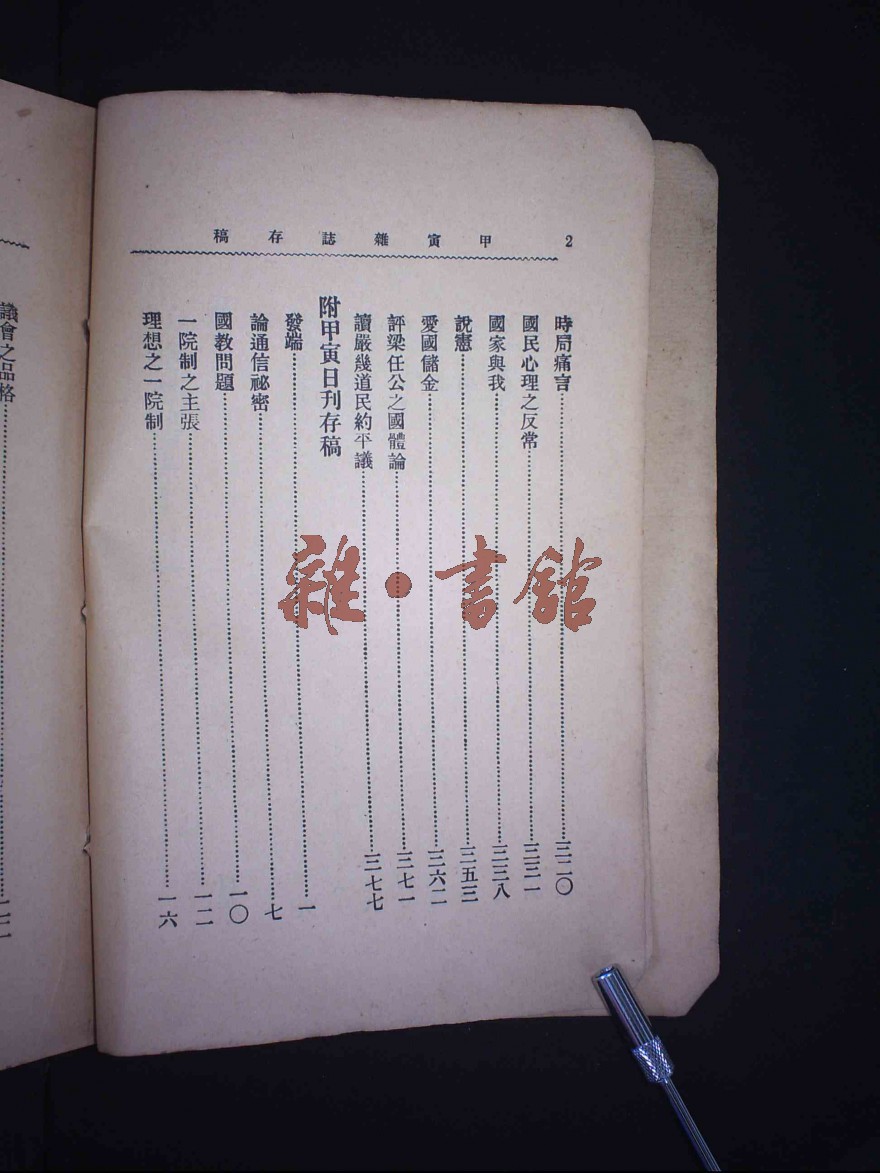 2 甲寅雜誌存稿
時局痛言……三二〇
國民心理之反常……三三一
國家與我……三三八
說憲……三五三
愛國儲金……三六二
評梁任公之國體論……三七一
讀嚴幾道民約平議……三七七
附甲寅日刊存稿
發端……一
論通信祕密……七
國教問題……一〇
一院制之主張……一二
理想之一院制……一六
議會之品格……
雜·書館